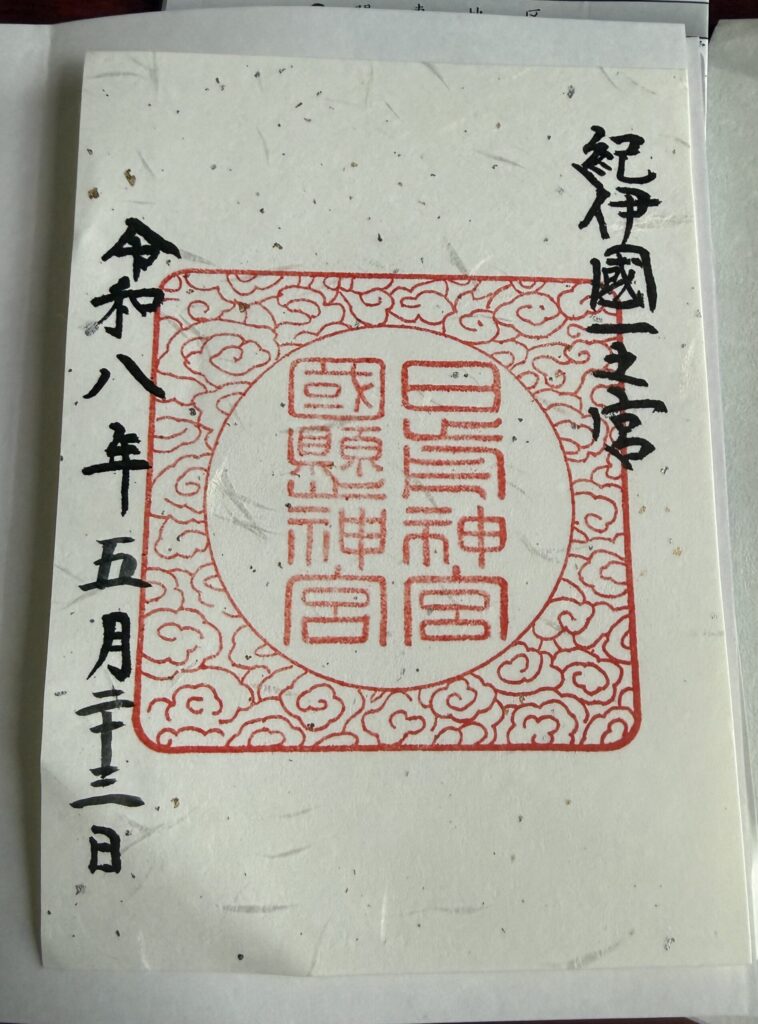 紀伊國一之宮
日前神宮
國懸神宮
令和八年五月二十三日